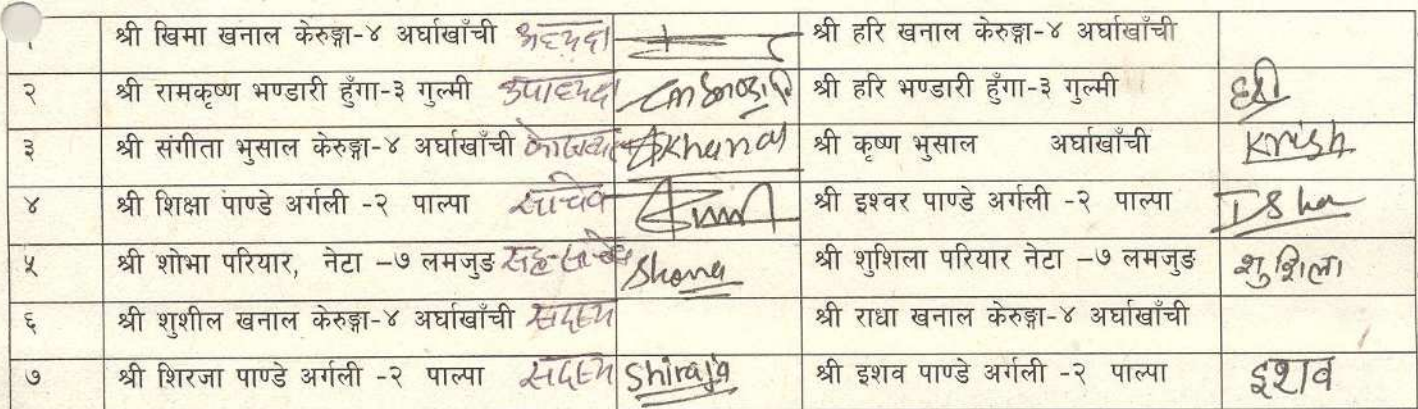 १ श्री खिमा खनाल केरुङ्गा-४ अर्घाखाँची अध्यक्ष श्री हरि खनाल केरुङ्गा-४ अर्घाखाँची
२ श्री रामकृष्ण भण्डारी हुँगा-३ गुल्मी उपाध्यक्ष श्री हरि भण्डारी हुँगा-३ गुल्मी हरी
३ श्री संगीता भुसाल केरुङ्गा-४ अर्घाखाँची कोषाध्यक्ष Skhanal श्री कृष्ण भुसाल अर्घाखाँची Krish
४ श्री शिक्षा पाण्डे अर्गली -२ पाल्पा सचिव श्री इश्वर पाण्डे अर्गली -२ पाल्पा
५ श्री शोभा परियार, नेटा –७ लमजुङ सह-सचिव Shova श्री शुशिला परियार नेटा –७ लमजुङ शुशिला
६ श्री शुशील खनाल केरुङ्गा-४ अर्घाखाँची सदस्य श्री राधा खनाल केरुङ्गा-४ अर्घाखाँची
७ श्री शिरजा पाण्डे अर्गली -२ पाल्पा सदस्य Shiraja श्री इशव पाण्डे अर्गली -२ पाल्पा इशव